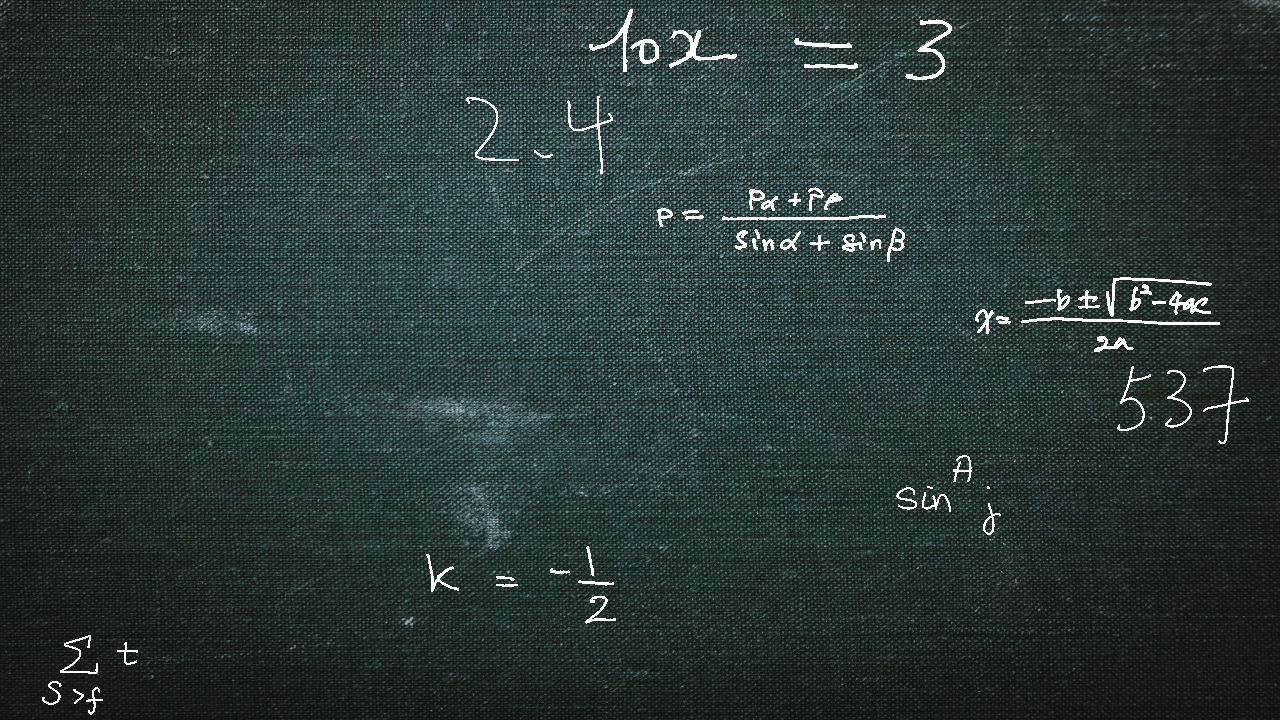 10x = 3
2.4
P = \frac{P_α + P_β}{sin α + sin β}
x = \frac{-b ± \sqrt{b² - 4ac}}{2a}
537
sin^A j
k = -\frac{1}{2}
\sum_{s>f} t